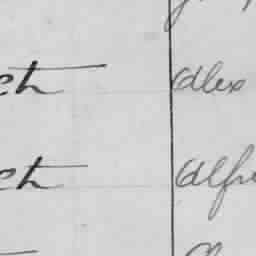 ch Alex
ch Alfre